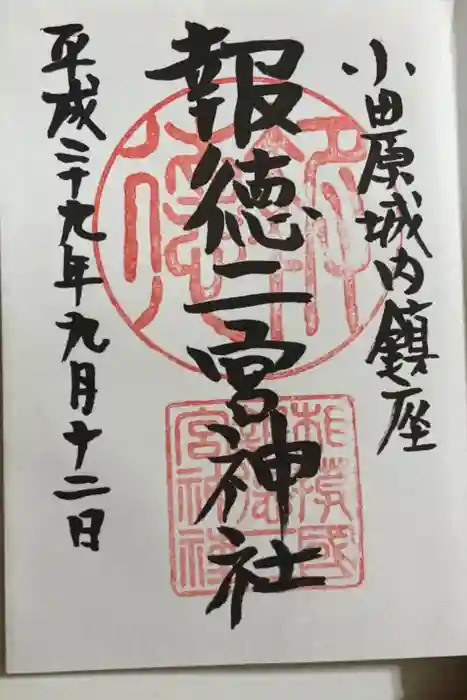 小田原城内鎮座
報徳二宮神社
平成二十九年九月十二日
報徳
相模國
報徳二
宮神社